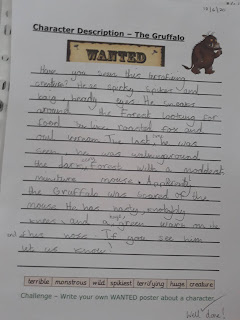 12/2/20
Character Description – The Gruffalo
WANTED
Have you seen this terrifying
creature? He as spiky spikes and
baig, beady eyes. He sneaks
around the forest looking for
food. He love roasted fox and
owl icecream. The last time he was
seen, he was walking around
the dark, forest with a
miniture mouse. Apparently,
the Gruffalo was scared of the
mouse. He has nasty, nobbly
knees and a ugly green wart on the
end of his nose. If you see him
let us know!
terrible monstrous wild spikiest terrifying huge creature
Challenge – Write your own WANTED poster about a character.
Well done!